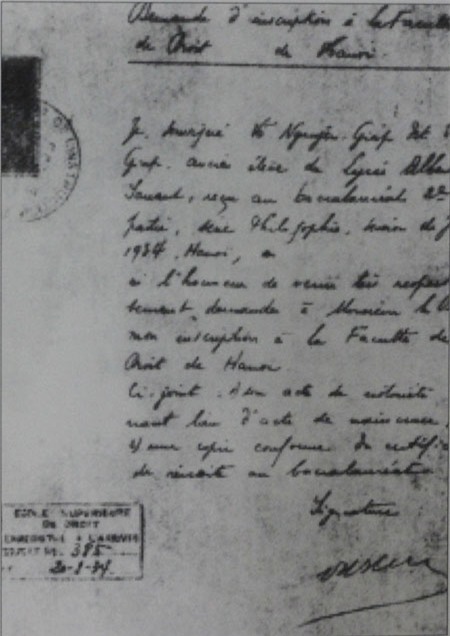 Demande d'inscription à la Faculté
de Droit de Hanoi
Je soussigné Võ Nguyên Giáp dit
Giap. ancien élève du Lycée Alber
Sarraut, reçu au baccalauréat 2e
partie, série Philosophie, session de j
1934, Hanoi,
ai l'honneur de venir très respec
tement demander à Monsieur le
mon inscription à la Faculté de
Droit de Hanoi
Ci-joint: 1) un acte de notoriété
nant lieu d'acte de naissance
2) une copie conforme du certifi
de réussite au baccalauréat
Signature
ECOLE SUPERIEURE
DE DROIT
ENREGISTRÉ A L'ARRIVÉE
385